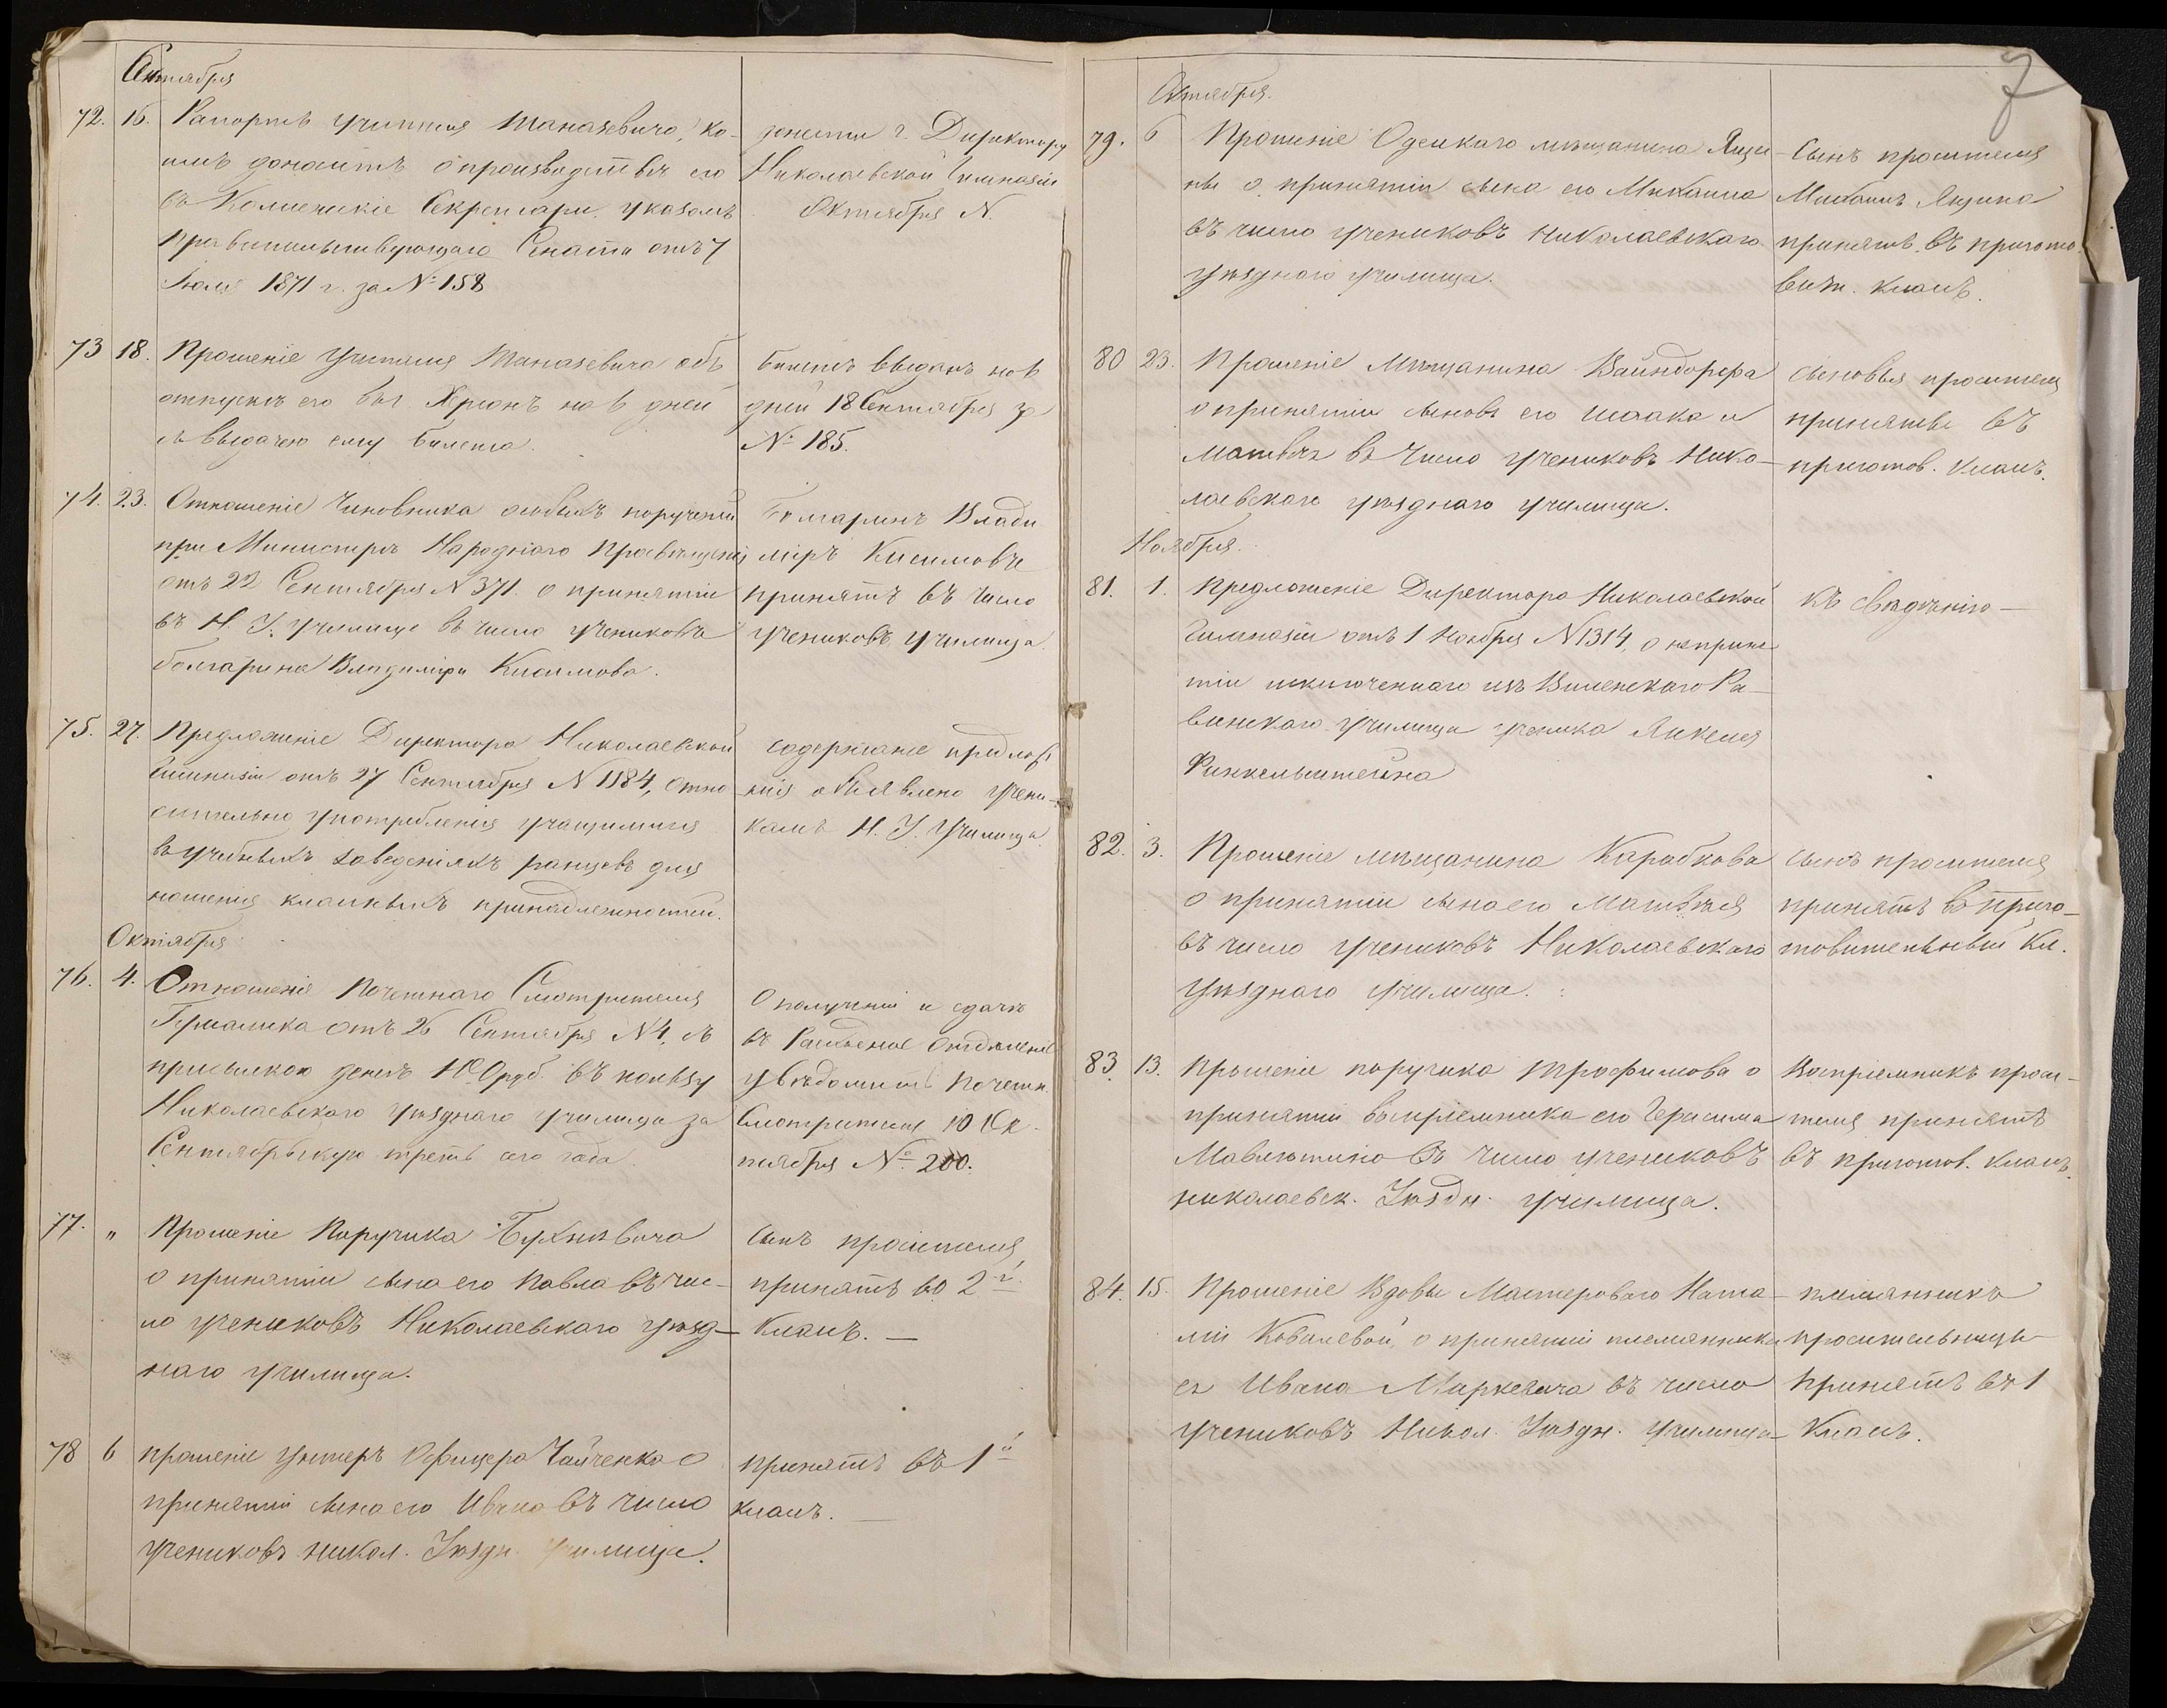 Октября
72. 16. Рапортъ учителя Танасевича, ко-
имъ доноситъ о производствѣ его
въ Коллежскіе Секретари, указомъ
Правительствующаго Сената отъ 7
Іюля 1871 г. за № 158
донести г. Директору
Николаевской Гимназіи
Октября N.
73 18. Прошеніе Учителя Танасевича объ
отпускѣ его въ г. Херсонъ на 6 дней
съ выдачею ему билета.
Билетъ выданъ на 6
дней 18 Сентября за
№ 185.
74. 23. Отношеніе Чиновника особыхъ порученій
при Министрѣ Народнаго Просвѣщенія
отъ 22 Сентября N 371. о принятіи
въ Н. У. училище въ число учениковъ
болгарина Владиміра Кисимова.
Болгаринъ Влади
міръ Кисимовъ
принятъ въ число
учениковъ училища.
75. 27. Предложеніе Директора Николаевской
Гимназіи отъ 27 Сентября N 1184, отно
сительно употребленія учащимися
въ учебныхъ заведеніяхъ ранцевъ для
ношенія классныхъ принадлежностей.
содержаніе предлож
нія объявлено учени-
камъ Н. У. Училища.
Октября
76. 4. Отношеніе Почетнаго Смотрителя
отъ 26 Сентября N 4, съ
присылкою денегъ 100 руб. въ пользу
Николаевскаго уѣзднаго училища за
Сентябрьскую треть сего года.
О полученіи и сдачѣ
въ Казначейское Отдѣленіе
увѣдомить Почетн.
Смотрителя 10 Ок-
тября № 200.
77. " Прошеніе Поручика Бухневича
о принятіи сына его Павла въ чис-
ло учениковъ Николаевскаго уѣзд-
наго училища.
Сынъ просителя
принятъ во 2й
Классъ. —
78 6 прошеніе унтеръ Офицера Чайченка о
принятіи сына его Ивана въ число
учениковъ Никол. Уѣздн. училища.
принятъ въ 1й
классъ. —
7
Октября.
79. 6 Прошеніе Одесскаго мѣщанина Ящи-
ны о принятіи сына его Михаила
въ число учениковъ Николаевскаго
уѣзднаго училища.
Сынъ просителя
Михаилъ Ящина
принятъ въ пригото
вит. классъ.
80 23. Прошеніе Мѣщанина Вайндорфа
о принятіи сыновъ его Исаака и
Матвѣя въ число учениковъ Нико-
лаевскаго уѣзднаго училища.
сыновья просителя
приняты въ
приготов. классъ.
Ноября.
81. 1. Предложеніе Директора Николаевской
Гимназіи отъ 1 Ноября N 1314, о неприня
тіи исключеннаго изъ Виленскаго Ра-
винскаго училища ученика
Финкельштейна
къ свѣдѣнію —
82. 3. Прошеніе мѣщанина Карабкова
о принятіи сына его Матвѣя
въ число учениковъ Николаевскаго
уѣзднаго училища.
сынъ просителя
принятъ въ приго-
товительный кл.
83. 13. Прошеніе поручика Трофимова о
принятіи воспріемника его Герасима
въ число учениковъ
николаевск. Уѣздн. училища.
Воспріемникъ проси-
теля принятъ
въ приготов. классъ.
84. 15. Прошеніе Вдовы Мастероваго Ната-
ліи Ковалевой, о принятіи племянника
ея Ивана Маркевича въ число
учениковъ Никол. Уѣздн. училища
племянникъ
просительницы
принятъ въ 1
Классъ.